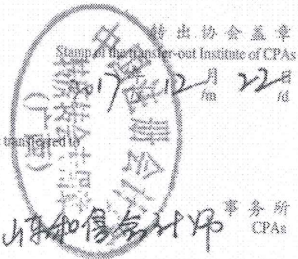 转出协会盖章
Stamp of the transfer-out Institute of CPAs
2017 年 12 月 22 日
/m /d
transferred to
山东和信会计师 事务所
CPAs